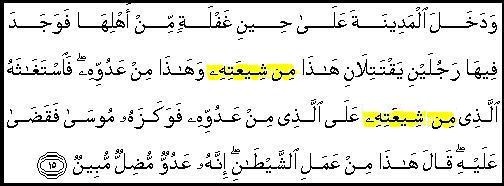 وَدَخَلَ ٱلْمَدِينَةَ عَلَىٰ حِينِ غَفْلَةٍ مِّنْ أَهْلِهَا فَوَجَدَ
فِيهَا رَجُلَيْنِ يَقْتَتِلَانِ هَـٰذَا مِن شِيعَتِهِۦ وَهَـٰذَا مِنْ عَدُوِّهِۦ ۖ فَٱسْتَغَـٰثَهُ
ٱلَّذِى مِن شِيعَتِهِۦ عَلَى ٱلَّذِى مِنْ عَدُوِّهِۦ فَوَكَزَهُۥ مُوسَىٰ فَقَضَىٰ
عَلَيْهِ ۖ قَالَ هَـٰذَا مِنْ عَمَلِ ٱلشَّيْطَـٰنِ ۖ إِنَّهُۥ عَدُوٌّ مُّضِلٌّ مُّبِينٌ ١٥